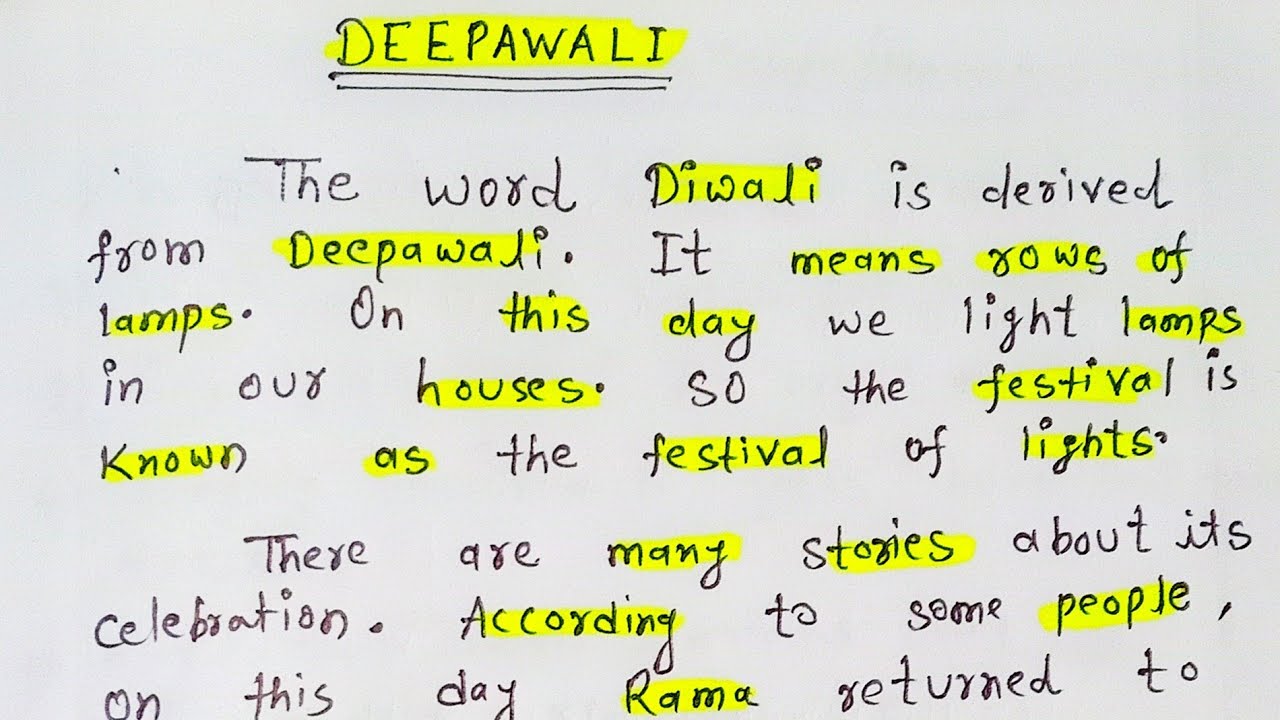 DEEPAWALI
The word Diwali is derived
from Deepawali. It means rows of
lamps. On this day we light lamps
in our houses. So the festival is
Known as the festival of lights.
There are many stories about its
celebration. According to some people,
on this day Rama returned to